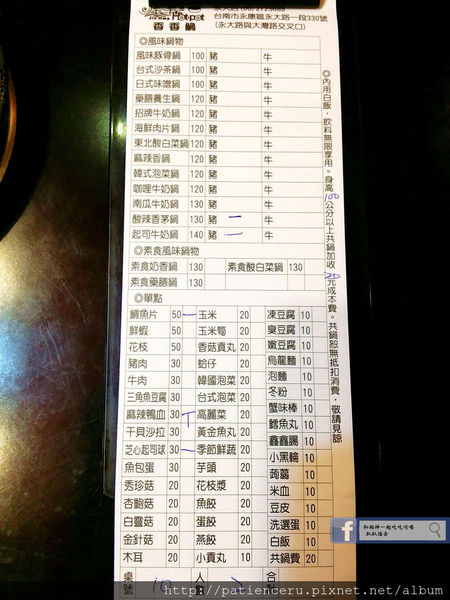 Hotpot
香香鍋
台南市永康區永大路一段330號
(永大路與大灣路交叉口)
◎風味鍋物
風味豚骨鍋 100 豬 牛
台式沙茶鍋 100 豬 牛
日式味噌鍋 100 豬 牛
藥膳養生鍋 120 豬 牛
招牌牛奶鍋 120 豬 牛
海鮮肉片鍋 120 豬 牛
東北酸白菜鍋 120 豬 牛
麻辣香鍋 120 豬 牛
韓式泡菜鍋 120 豬 牛
咖哩牛奶鍋 120 豬 牛
南瓜牛奶鍋 130 豬 牛
酸辣香茅鍋 130 豬 二 牛
起司牛奶鍋 140 豬 一 牛
◎素食風味鍋物
素食奶香鍋 130 素食酸白菜鍋 130
素食藥膳鍋 130
◎單點
鯛魚片 50 一 玉米 20 凍豆腐 10
鮮蝦 50 玉米筍 20 臭豆腐 10
花枝 50 香菇貢丸 20 嫩豆腐 10
豬肉 30 蛤仔 20 烏龍麵 10
牛肉 30 韓國泡菜 20 泡麵 10
三角魚豆腐 30 台式泡菜 20 冬粉 10
麻辣鴨血 30 高麗菜 20 蟹味棒 10
干貝沙拉 30 黃金魚丸 20 鱈魚丸 10
芝心起司球 30 一 季節鮮蔬 20 鑫鑫腸 10
魚包蛋 30 芋頭 20 小黑輪 10
秀珍菇 20 花枝漿 20 蒟蒻 10
杏鮑菇 20 魚餃 20 米血 10
白靈菇 20 蛋餃 20 豆皮 10
金針菇 20 燕餃 20 洗選蛋 10
木耳 20 小貢丸 10 白飯 10
共鍋費 20
桌號 人數 合
◎內用白飯，飲料無限享用。身高100公分以上共鍋加收20元成本費。共鍋恕無抵扣消費，敬請見諒
和雨神一起吃吃喝喝
趴趴造去
http://patienceru.pixnet.net/album